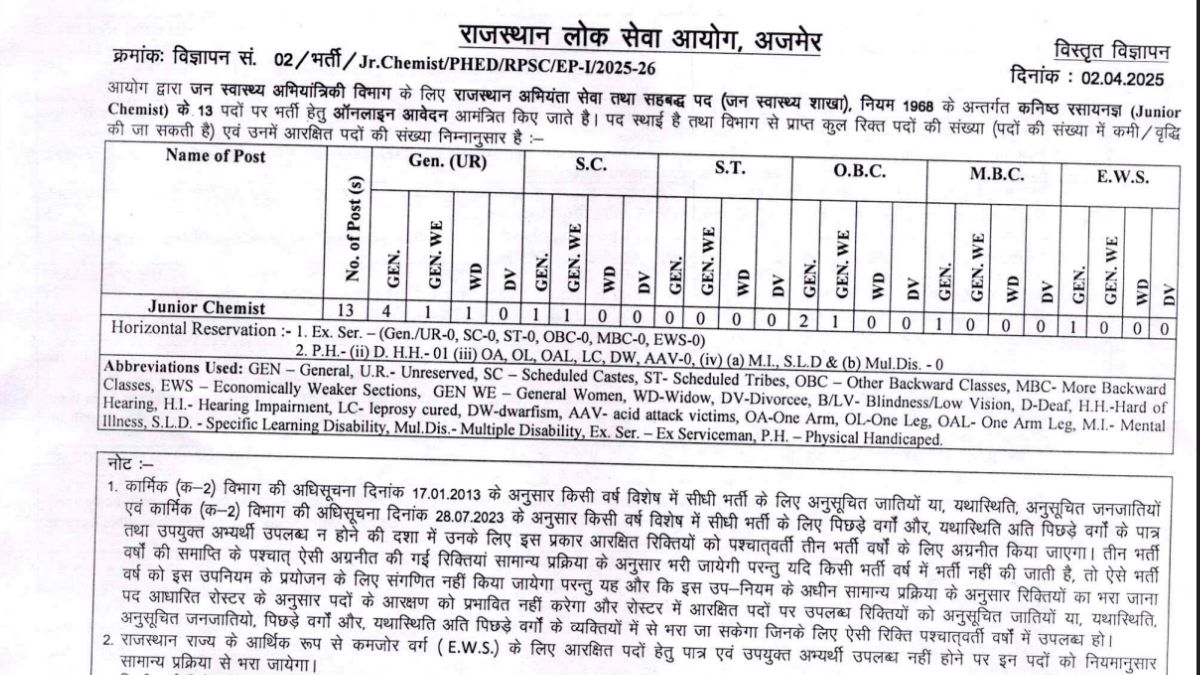 राजस्थान लोक सेवा आयोग, अजमेर
विस्तृत विज्ञापन
क्रमांकः विज्ञापन सं. 02/भर्ती/Jr.Chemist/PHED/RPSC/EP-I/2025-26
दिनांक : 02.04.2025
आयोग द्वारा जन स्वास्थ्य अभियांत्रिकी विभाग के लिए राजस्थान अभियंता सेवा तथा सहबद्ध पद (जन स्वास्थ्य शाखा), नियम 1968 के अन्तर्गत कनिष्ठ रसायनज्ञ (Junior
Chemist) के 13 पदों पर भर्ती हेतु ऑनलाइन आवेदन आमंत्रित किए जाते है। पद स्थाई है तथा विभाग से प्राप्त कुल रिक्त पदों की संख्या (पदों की संख्या में कमी/वृद्धि
की जा सकती है) एवं उनमें आरक्षित पदों की संख्या निम्नानुसार है :–
Name of Post No. of Post (s) Gen. (UR) S.C. S.T. O.B.C. M.B.C. E.W.S.
GEN. GEN. WE WD DV GEN. GEN. WE WD DV GEN. GEN. WE WD DV GEN. GEN. WE WD DV GEN. GEN. WE WD DV GEN. GEN. WE WD DV
Junior Chemist 13 4 1 1 0 1 1 0 0 0 0 0 0 2 1 0 0 1 0 0 0 1 0 0 0
Horizontal Reservation :- 1. Ex. Ser. – (Gen./UR-0, SC-0, ST-0, OBC-0, MBC-0, EWS-0)
2. P.H.- (ii) D. H.H.- 01 (iii) OA, OL, OAL, LC, DW, AAV-0, (iv) (a) M.I., S.L.D & (b) Mul.Dis. - 0
Abbreviations Used: GEN – General, U.R.- Unreserved, SC – Scheduled Castes, ST- Scheduled Tribes, OBC – Other Backward Classes, MBC- More Backward
Classes, EWS – Economically Weaker Sections, GEN WE – General Women, WD-Widow, DV-Divorcee, B/LV- Blindness/Low Vision, D-Deaf, H.H.-Hard of
Hearing, H.I.- Hearing Impairment, LC- leprosy cured, DW-dwarfism, AAV- acid attack victims, OA-One Arm, OL-One Leg, OAL- One Arm Leg, M.I.- Mental
Illness, S.L.D. - Specific Learning Disability, Mul.Dis.- Multiple Disability, Ex. Ser. – Ex Serviceman, P.H. – Physical Handicaped.
नोट :–
1. कार्मिक (क–2) विभाग की अधिसूचना दिनांक 17.01.2013 के अनुसार किसी वर्ष विशेष में सीधी भर्ती के लिए अनुसूचित जातियों या, यथास्थिति, अनुसूचित जनजातियों
एवं कार्मिक (क–2) विभाग की अधिसूचना दिनांक 28.07.2023 के अनुसार किसी वर्ष विशेष में सीधी भर्ती के लिए पिछड़े वर्गो और, यथास्थिति अति पिछड़े वर्गो के पात्र
तथा उपयुक्त अभ्यर्थी उपलब्ध न होने की दशा में उनके लिए इस प्रकार आरक्षित रिक्तियों को पश्चात्वर्ती तीन भर्ती वर्षो के लिए अग्रनीत किया जाएगा। तीन भर्ती
वर्षो की समाप्ति के पश्चात् ऐसी अग्रनीत की गई रिक्तियां सामान्य प्रक्रिया के अनुसार भरी जायेगी परन्तु यदि किसी भर्ती वर्ष में भर्ती नहीं की जाती है, तो ऐसे भर्ती
वर्ष को इस उपनियम के प्रयोजन के लिए संगणित नहीं किया जायेगा परन्तु यह और कि इस उप–नियम के अधीन सामान्य प्रक्रिया के अनुसार रिक्तियों का भरा जाना
पद आधारित रोस्टर के अनुसार पदों के आरक्षण को प्रभावित नहीं करेगा और रोस्टर में आरक्षित पदों पर उपलब्ध रिक्तियों को अनुसूचित जातियों या, यथास्थिति,
अनुसूचित जनजातियो, पिछड़े वर्गो और, यथास्थिति अति पिछड़े वर्गो के व्यक्तियों में से भरा जा सकेगा जिनके लिए ऐसी रिक्ति पश्चात्वर्ती वर्षो में उपलब्ध हो।
2. राजस्थान राज्य के आर्थिक रूप से कमजोर वर्ग ( E.W.S.) के लिए आरक्षित पदों हेतु पात्र एवं उपयुक्त अभ्यर्थी उपलब्ध नहीं होने पर इन पदों को नियमानुसार
सामान्य प्रक्रिया से भरा जायेगा।